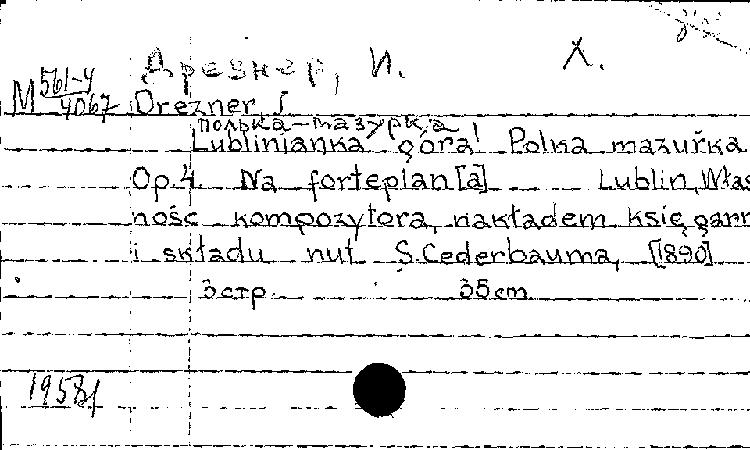 Дрезнер, И. Х.
М 561-4
4067 Drezner J
полька-мазурка
Lublinianka góra! Polka mazurka
Op. 4. Na fortepian[a] Lublin, Włas
ność kompozytora, nakładem księgarn
i składu nut S. Cederbauma, [1890]
3 стр. 35 cm
1958